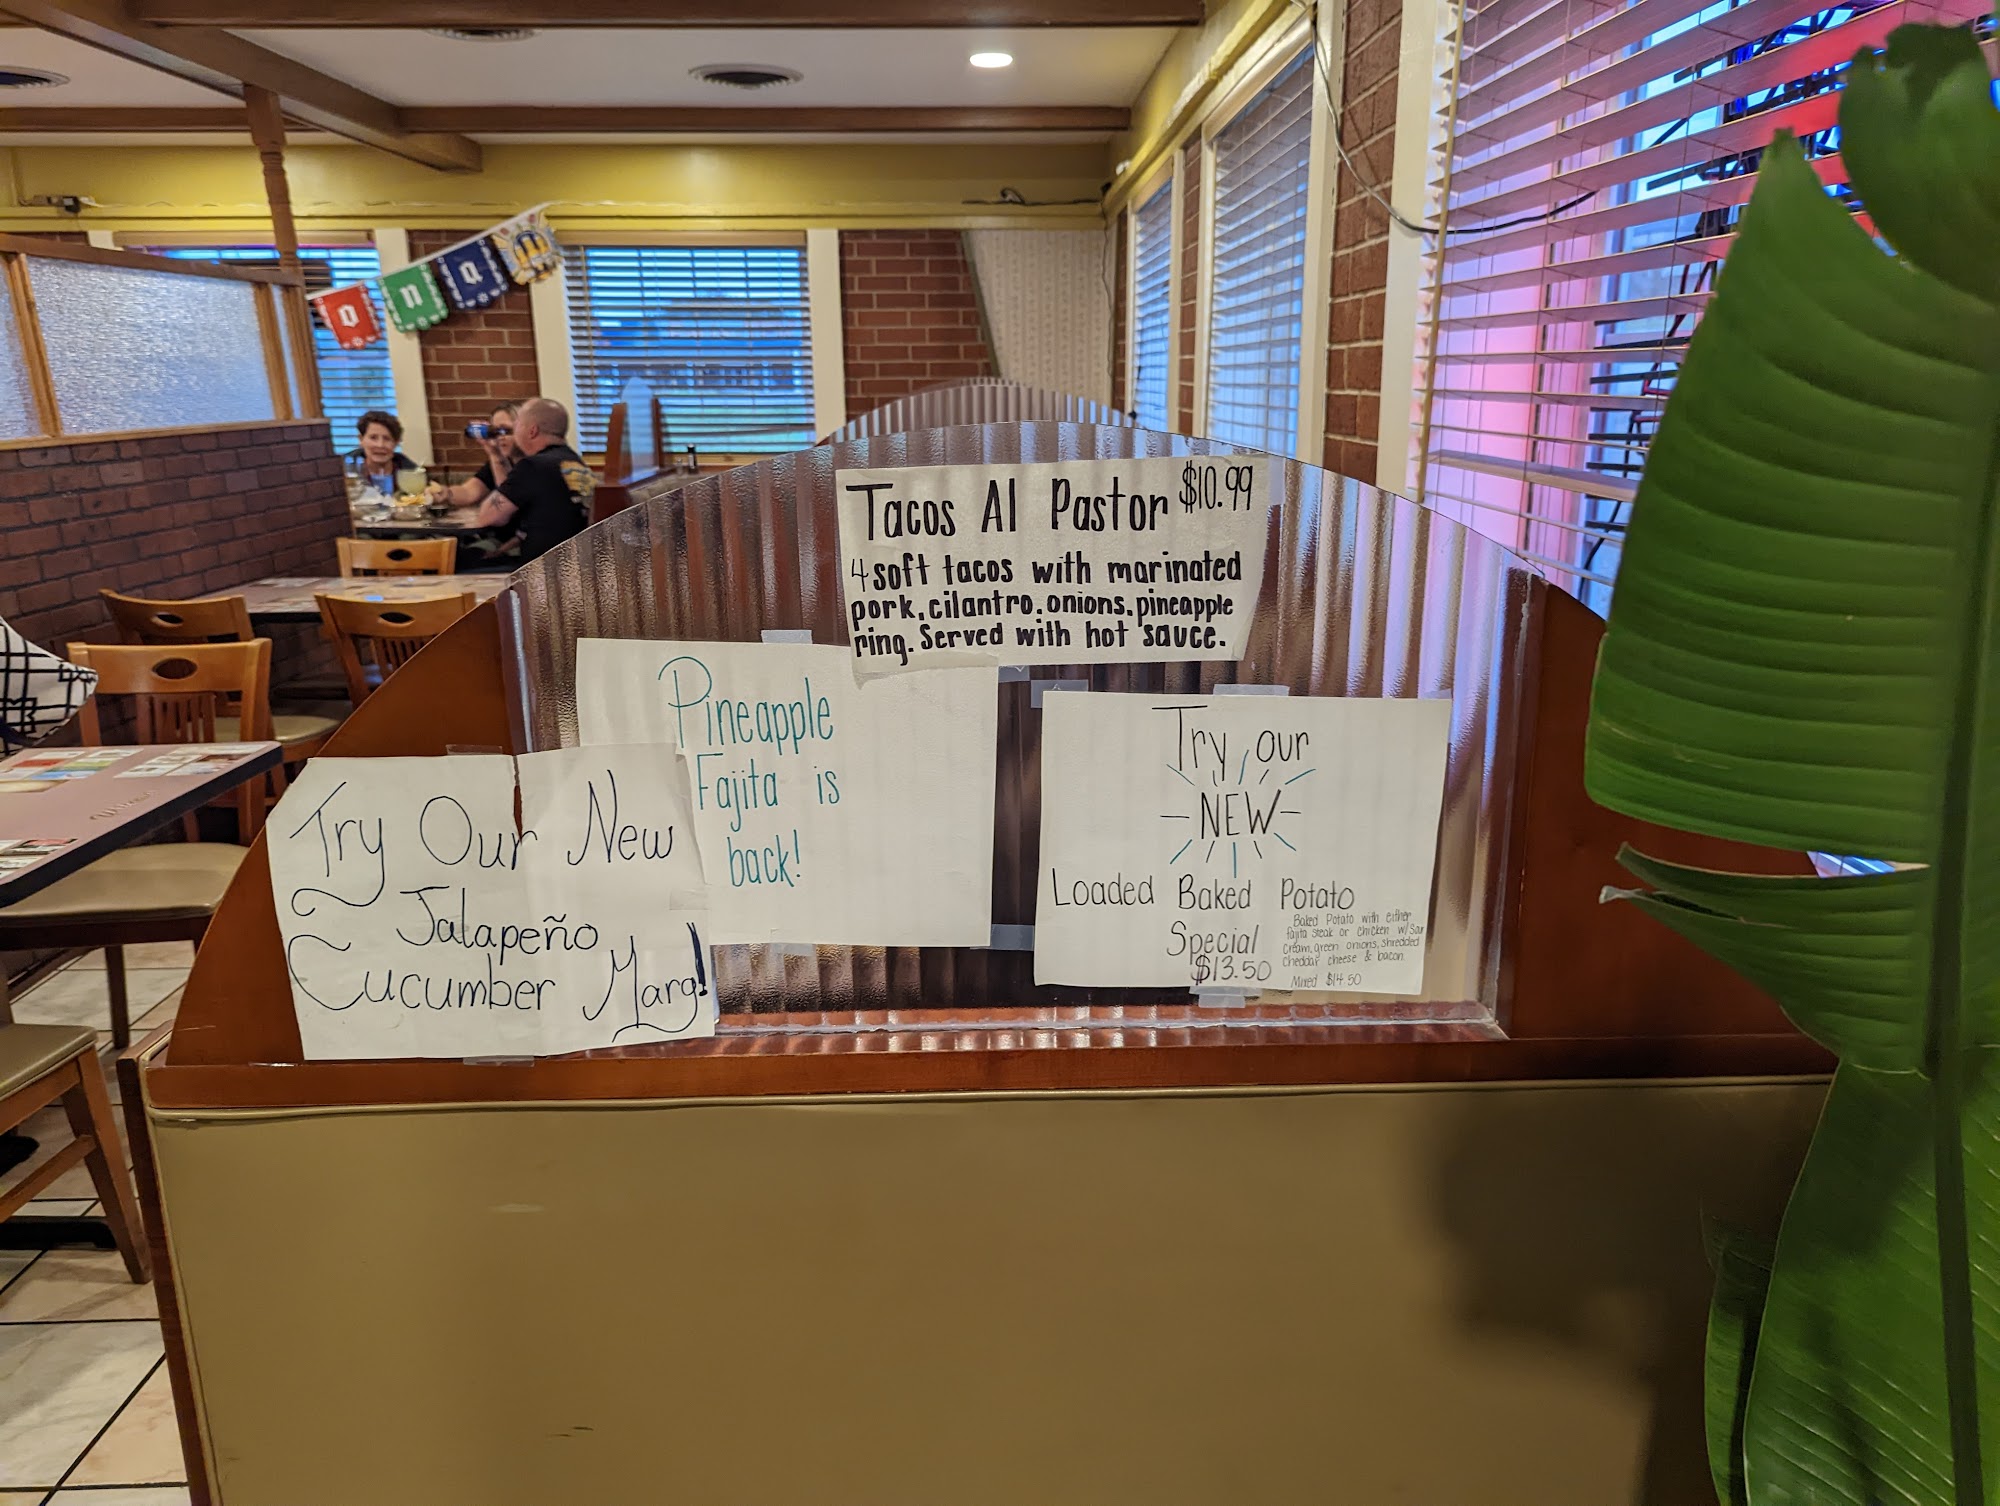 Tacos Al Pastor $10.99
4 soft tacos with marinated
pork, cilantro, onions, pineapple
ring. Served with hot sauce.
Pineapple
Fajita is
back!
Try Our New
Jalapeño
Cucumber Marg!
Try our
NEW
Loaded Baked Potato
Special
$13.50
Baked Potato with either
fajita steak or chicken w/ Sour
cream, green onions, shredded
cheddar cheese & bacon.
Mixed $14.50